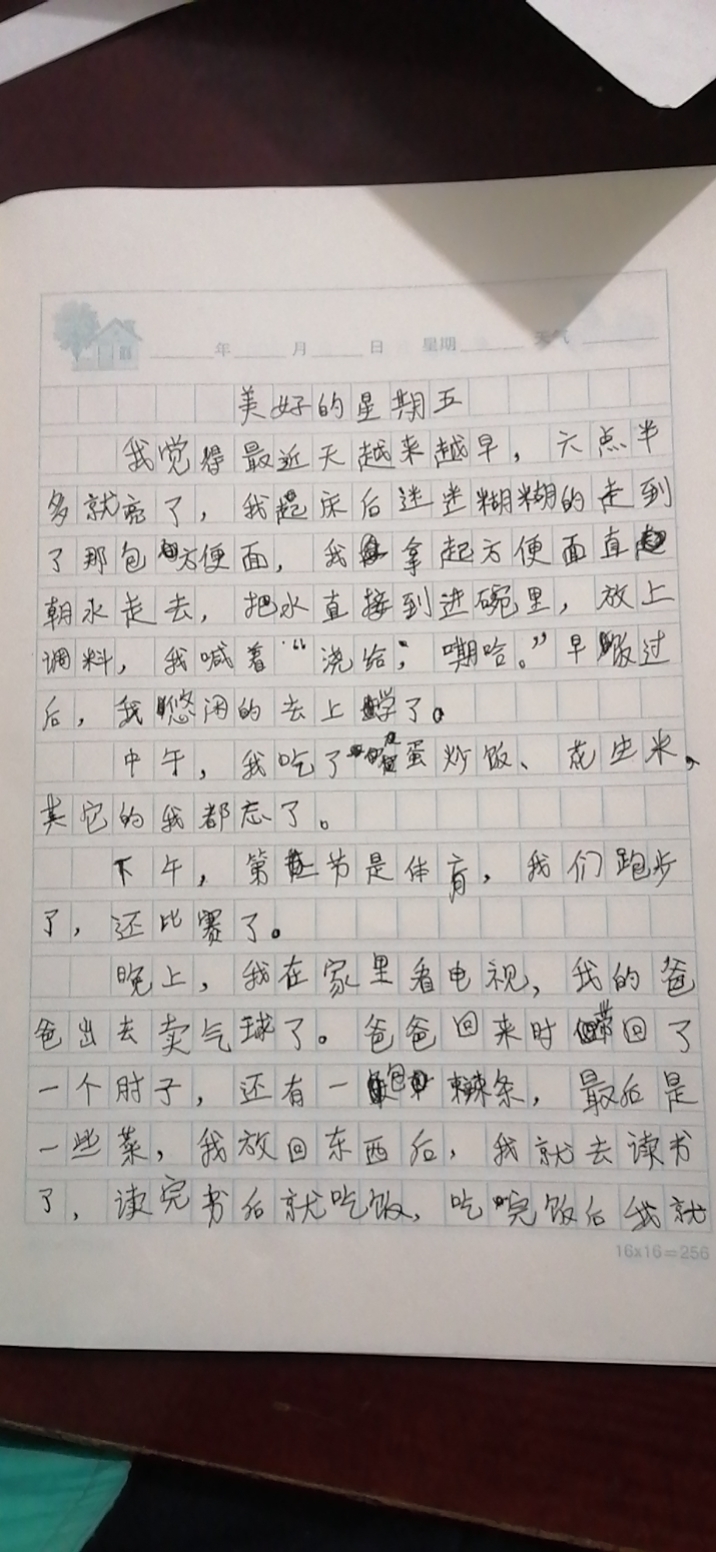 年 月 日 星期 天气
美好的星期五
我觉得最近天越来越早，六点半
多就亮了，我起床后迷迷糊糊的走到
了那包方便面，我拿起方便面直
朝水走去，把水直接到进碗里，放上
调料，我喊着“浇给；嘲哈。”早饭过
后，我悠闲的去上学了。
中午，我吃了蛋炒饭、花生米，
其它的我都忘了。
下午，第节是体育，我们跑步
了，还比赛了。
晚上，我在家里看电视，我的爸
爸出去卖气球了。爸爸回来时带回了
一个肘子，还有一包辣条，最后是
一些菜，我放回东西后，我就去读书
了，读完书后就吃饭，吃完饭后我就
16x16=256